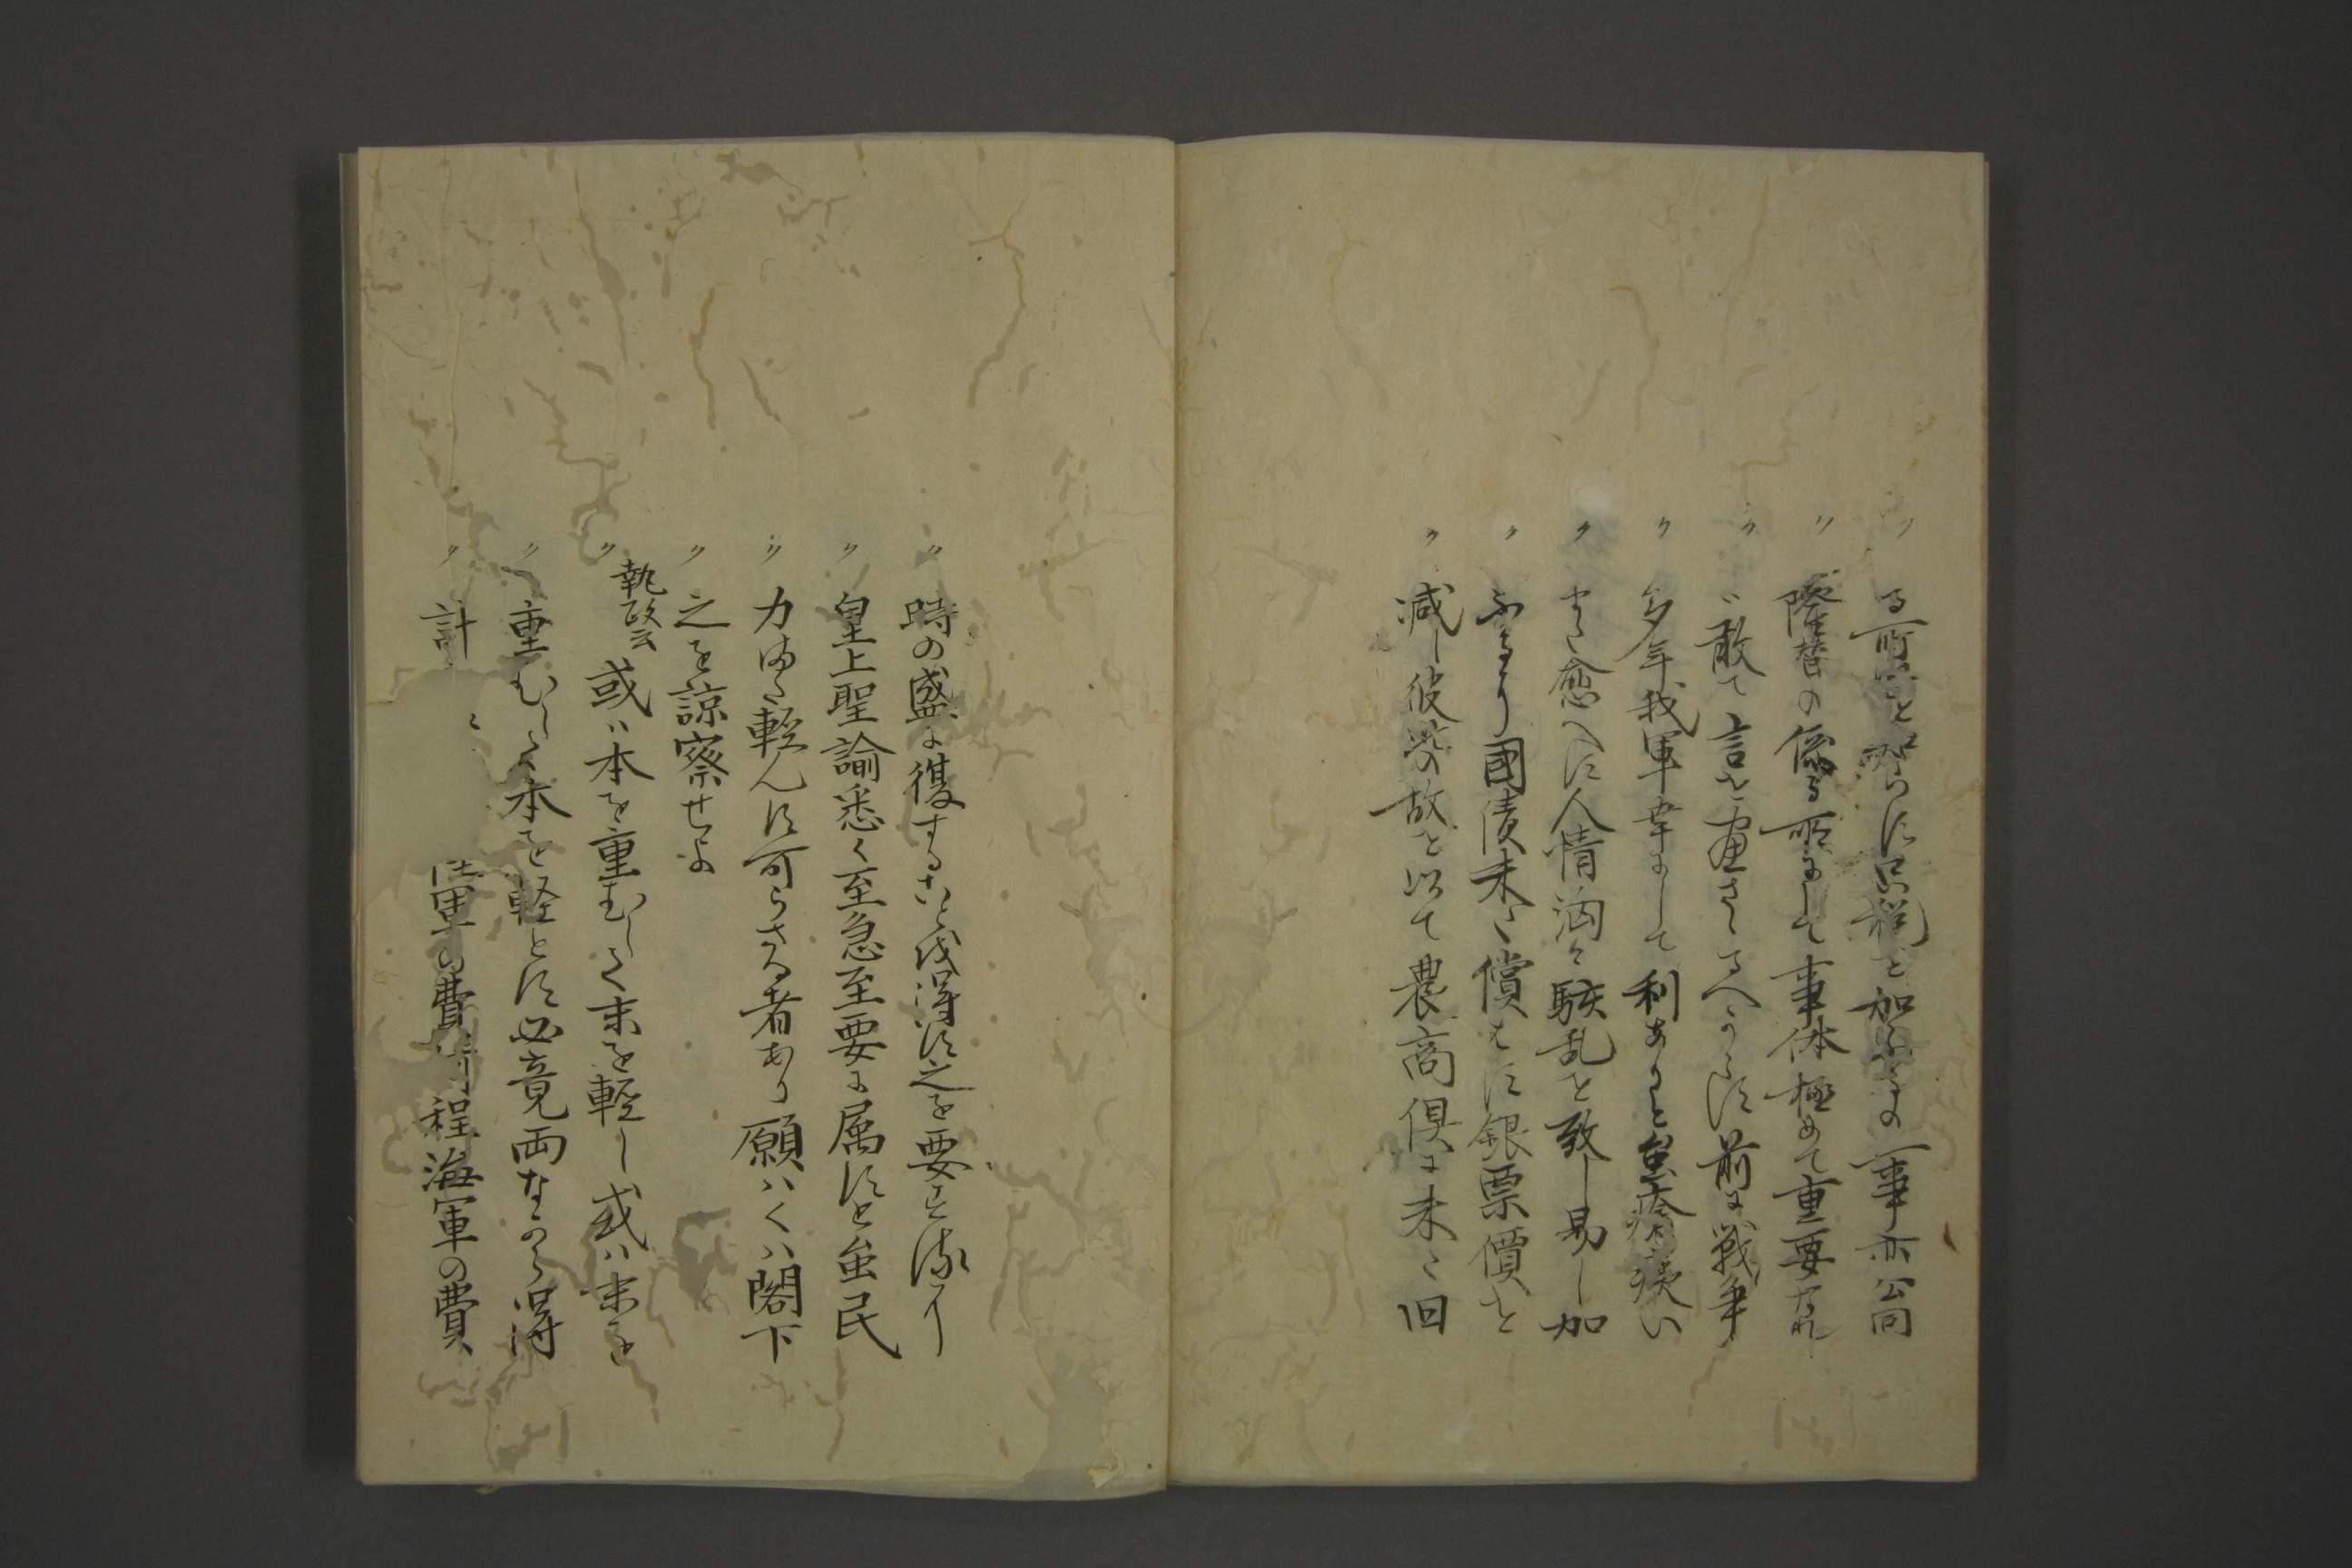 〃る所以を知らに只税を加ふるの一事亦公同
〃隆替の係る所にして事体極めて重要なれ
〃ハ敢て言を尽さゝるへからに前に戦争
〃多年我軍幸にして利ありと虽瘡痍い
〃また愈へに人情洶々駭乱を致し易し加
〃ふるり國債未た償はに銀票價を
〃减し彼等の故を以て農商倶に未た回
〃時の盛に復することを得に之を要するに
〃皇上聖諭悉く至急至要に属にと虽民
〃力ゆた軽んに可らさる者あり願ハくハ閣下
〃之を諒察せよ
執政云
〃或ハ本を重むして末を軽し或ハ末を
〃重むして本を軽とに必竟両なから得
〃計 陸軍の費 程海軍の費